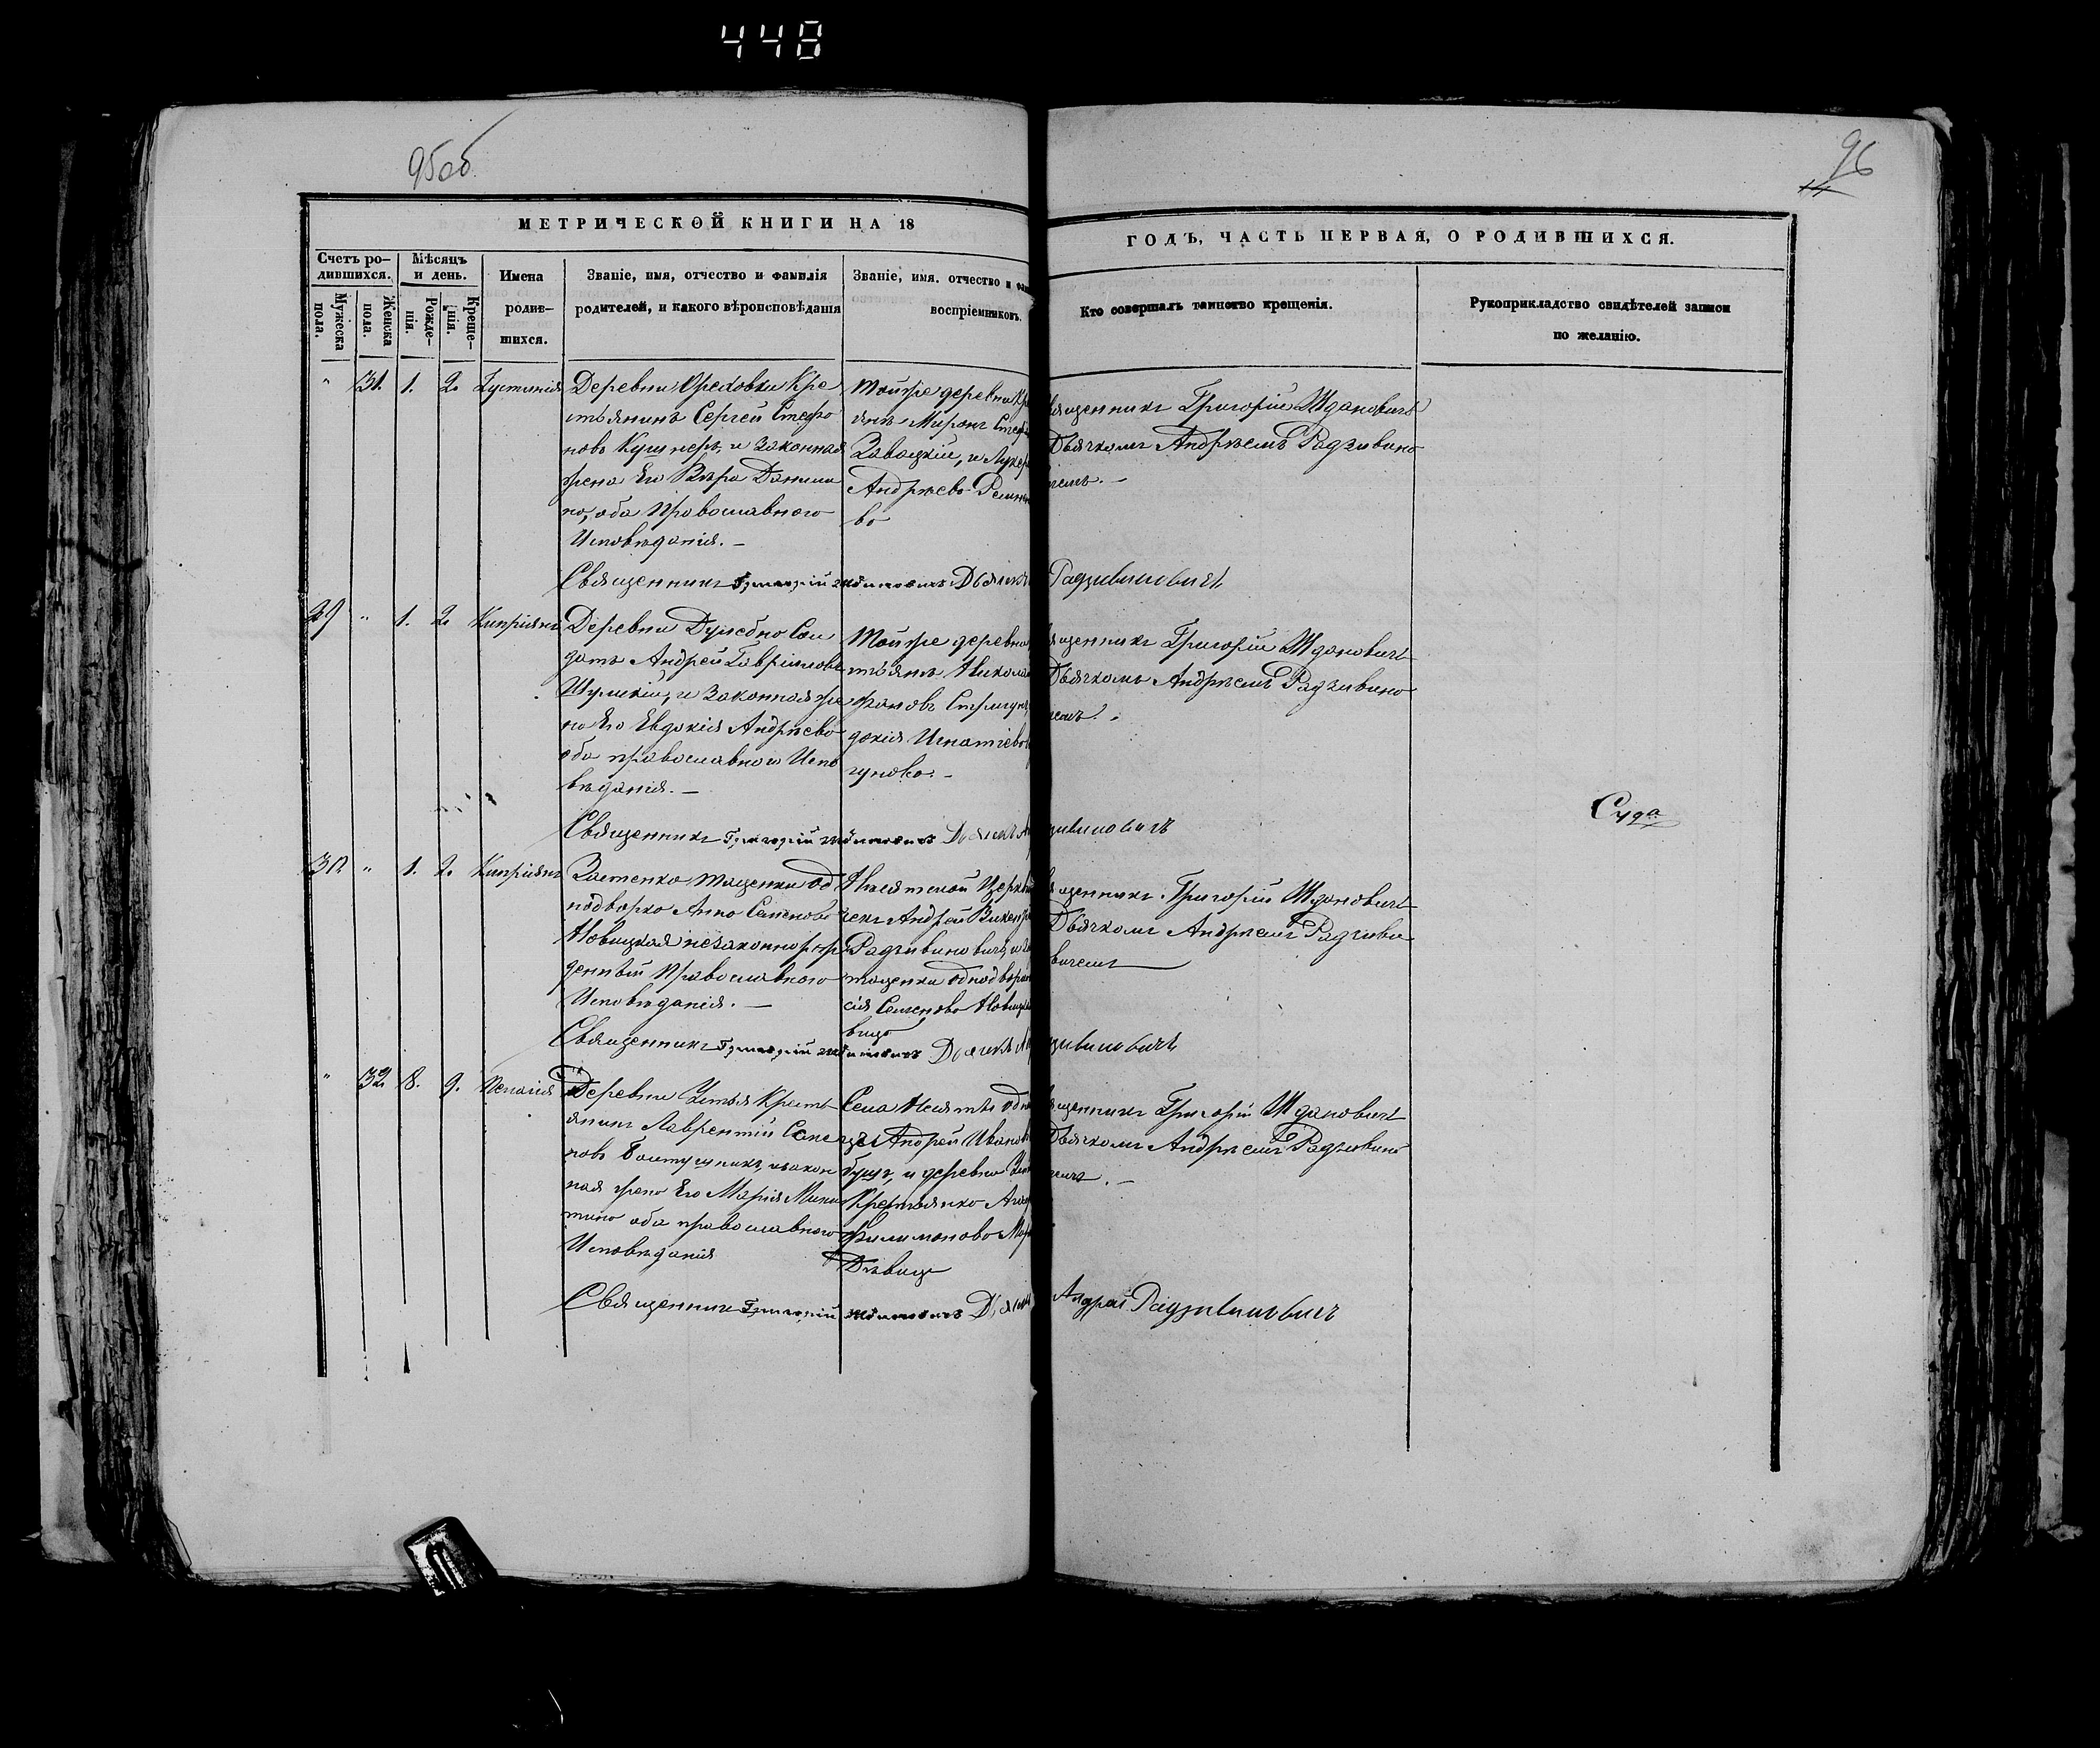 448
95об
96
14
МЕТРИЧЕСКОЙ КНИГИ НА 18
ГОДЪ, ЧАСТЬ ПЕРВАЯ, О РОДИВШИХСЯ.
Счетъ ро-
дившихся.
Мѣсяцъ
и день.
Мужеска
пола.
Женска
пола.
Рожде-
нія.
Креще-
нія.
Имена
родив-
шихся.
Званіе, имя, отчество и фамилія
родителей, и какого вѣроисповѣданія
Званіе, имя, отчество и фам
воспріемниковъ.
Кто совершалъ таинство крещенія.
Рукоприкладство свидѣтелей записи
по желанію.
" 31. 1. 2. Іустинія
Деревни Орековки Кре
стьянинъ Сергей Стефа
новъ Кушнеръ, и Законная
жена Его Вѣра Данило
на, оба Православнаго
Исповѣданія. —
Тойже деревни Кре
янъ Миронъ Стеф
Завацкій, и Лукер
Андрѣева
ва
вященникъ Григорій Ждановичъ
Дьячкомъ Андрѣемъ Радзивино
чемъ. —
Священникъ Григорій Ждановичъ Дьячекъ Радзивиновичъ
29 " 1. 2. Кипріянъ
Деревни Дулебно Сол
датъ Андрей Гавріиловъ
Шумскій, и Законная же
на Его Евдокія Андрѣева
оба православнаго Испо
вѣданія. —
Тойже деревни
стьянъ Никола
фановъ Стригун
докія Игнатіева
гунова. —
ященникъ Григорій Ждановичъ
Дьячкомъ Андрѣемъ Радзивино
чемъ.
Суда
Священникъ Григорій Ждановичъ Дьячекъ А
дзивиновичъ
30 " 1. 2. Кипріянъ
Застенка Тащенки Од
нодворка Анна Семенова
Новицкая незаконнорож
денный Православнаго
Исповѣданія. —
Несятской Церкви
чекъ Андрей Викент
Радзивиновичъ, и
тащенки однодворк
сія Семенова Новицка
вица
вященникъ Григорій Ждановичъ
Дьячкомъ Андрѣемъ Радзиви
вичемъ
Священникъ Григорій Ждановичъ Дьячекъ А
дзивиновичъ
" 32 8. 9. Пелагія
Деревни Устья Кресть
янинъ Лаврентій Семе
новъ Болтушникъ, изакон
ная жена Его Марія Мики
тина оба православнаго
Исповѣданія
Села Несятъ одно
Андрей Иванов
и деревни Уст
Крестьянка Ага
Филимонова Мар
Дѣвица
ященникъ Григорій Ждановичъ
Дьячкомъ Андрѣемъ Радзивино
чемъ. —
Священникъ Григорій Ждановичъ Дьячекъ Андрей Радзивиновичъ